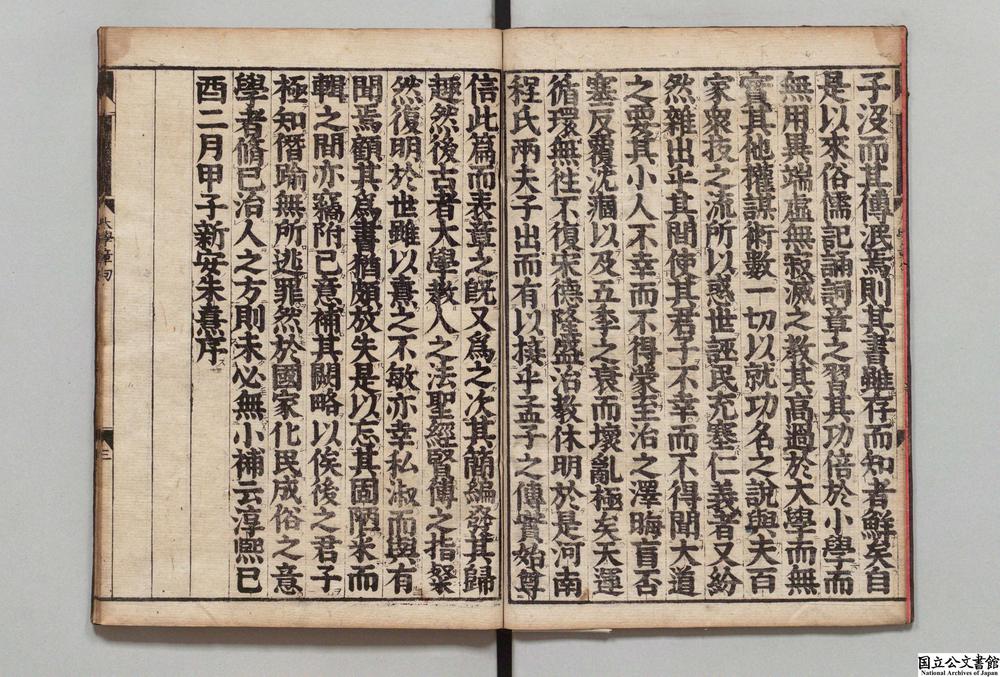 子沒而其傳泯焉則其書雖存而知者鮮矣自
是以來俗儒記誦詞章之習其功倍於小學而
無用異端虛無寂滅之教其高過於大學而無
實其他權謀術數一切以就功名之說與夫百
家衆技之流所以惑世誣民充塞仁義者又紛
然雜出乎其間使其君子不幸而不得聞大道
之要其小人不幸而不得蒙至治之澤晦盲否
塞反覆沈痼以及五季之衰而壞亂極矣天運
循環無往不復宋德隆盛治教休明於是河南
程氏兩夫子出而有以接乎孟子之傳實始尊
信此篇而表章之旣又爲之次其簡編發其歸
趣然後古者大學教人之法聖經賢傳之指粲
然復明於世雖以熹之不敏亦幸私淑而與有
聞焉顧其爲書猶頗放失是以忘其固陋采而
輯之間亦竊附己意補其闕略以俟後之君子
極知僭踰無所逃罪然於國家化民成俗之意
學者脩己治人之方則未必無小補云淳熙己
酉二月甲子新安朱熹序
大學章句
三
国立公文書館
National Archives of Japan